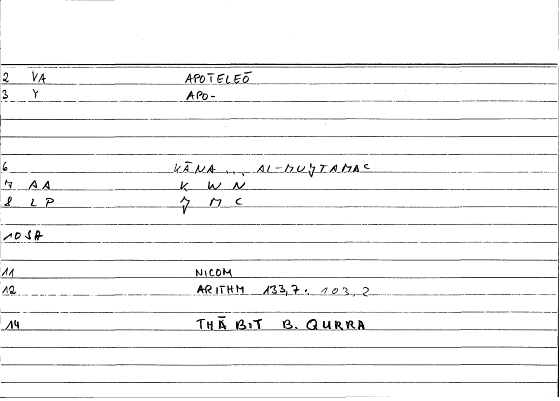 2 VA APOTELEŌ
3 Y APO-
6 KĀNA ... AL-MUǦTAMAC
7 AA K W N
8 LP Ǧ M C
10 SA
11 NICOM
12 ARITHM 133,7. 103,2
14 THĀBIT B. QURRA